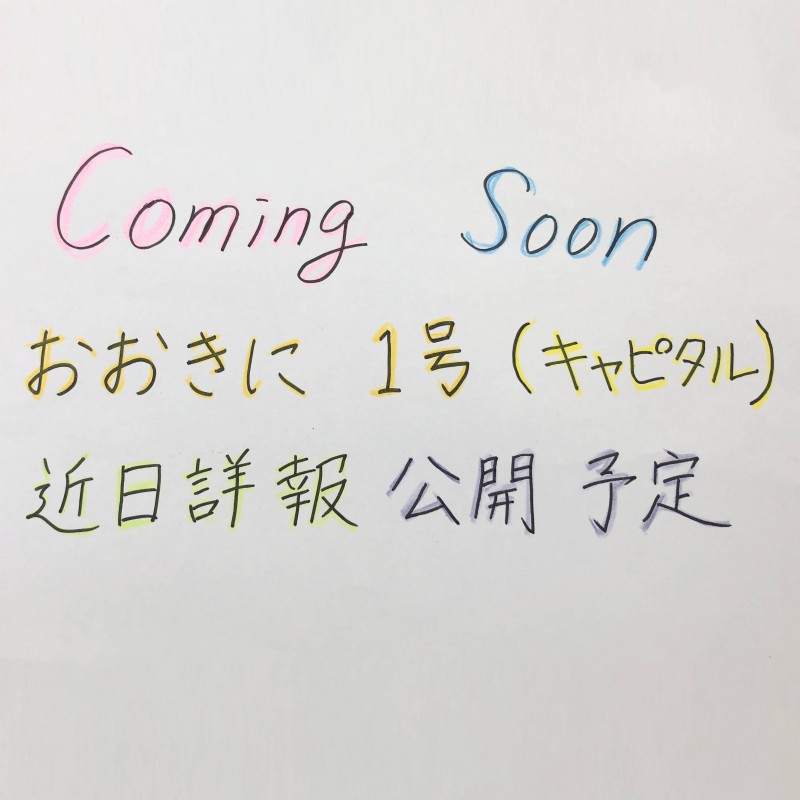 Coming Soon
おおきに 1号 (キャピタル)
近日詳報 公開 予定